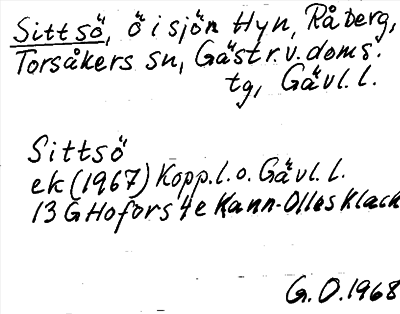 Sittsö, ö i sjön Hyn, Råberg,
Torsåkers sn, Gästr. v. doms.
tg, Gävl. l.
Sittsö
ek (1967) Kopp. l. o. Gävl. l.
13 G Hofors 4 e Kann-Olles Klack
G. O. 1968